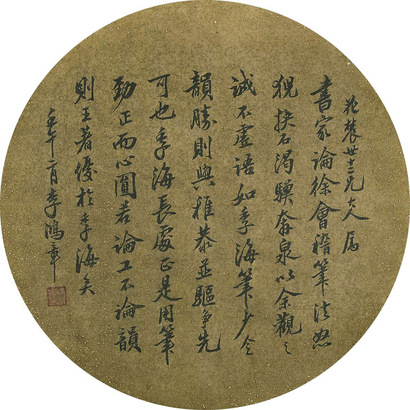 花農世兄大人屬
書家論徐會稽筆法怒
猊抉石渴驥奔泉以余觀之
誠不虛語如季海筆少令
韻勝則與稚恭並驅爭先
可也季海長處正是用筆
勁正而心圓若論工不論韻
則王著優於季海矣
壬午二月李鴻章